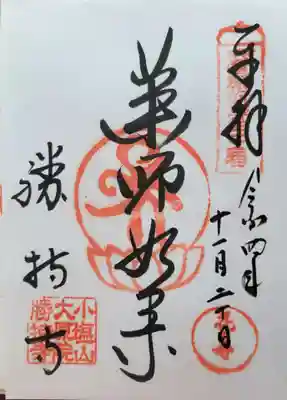 奉拝
令和四年
十一月二十日
薬師如来
勝持寺
小塩山
大原院
勝持寺